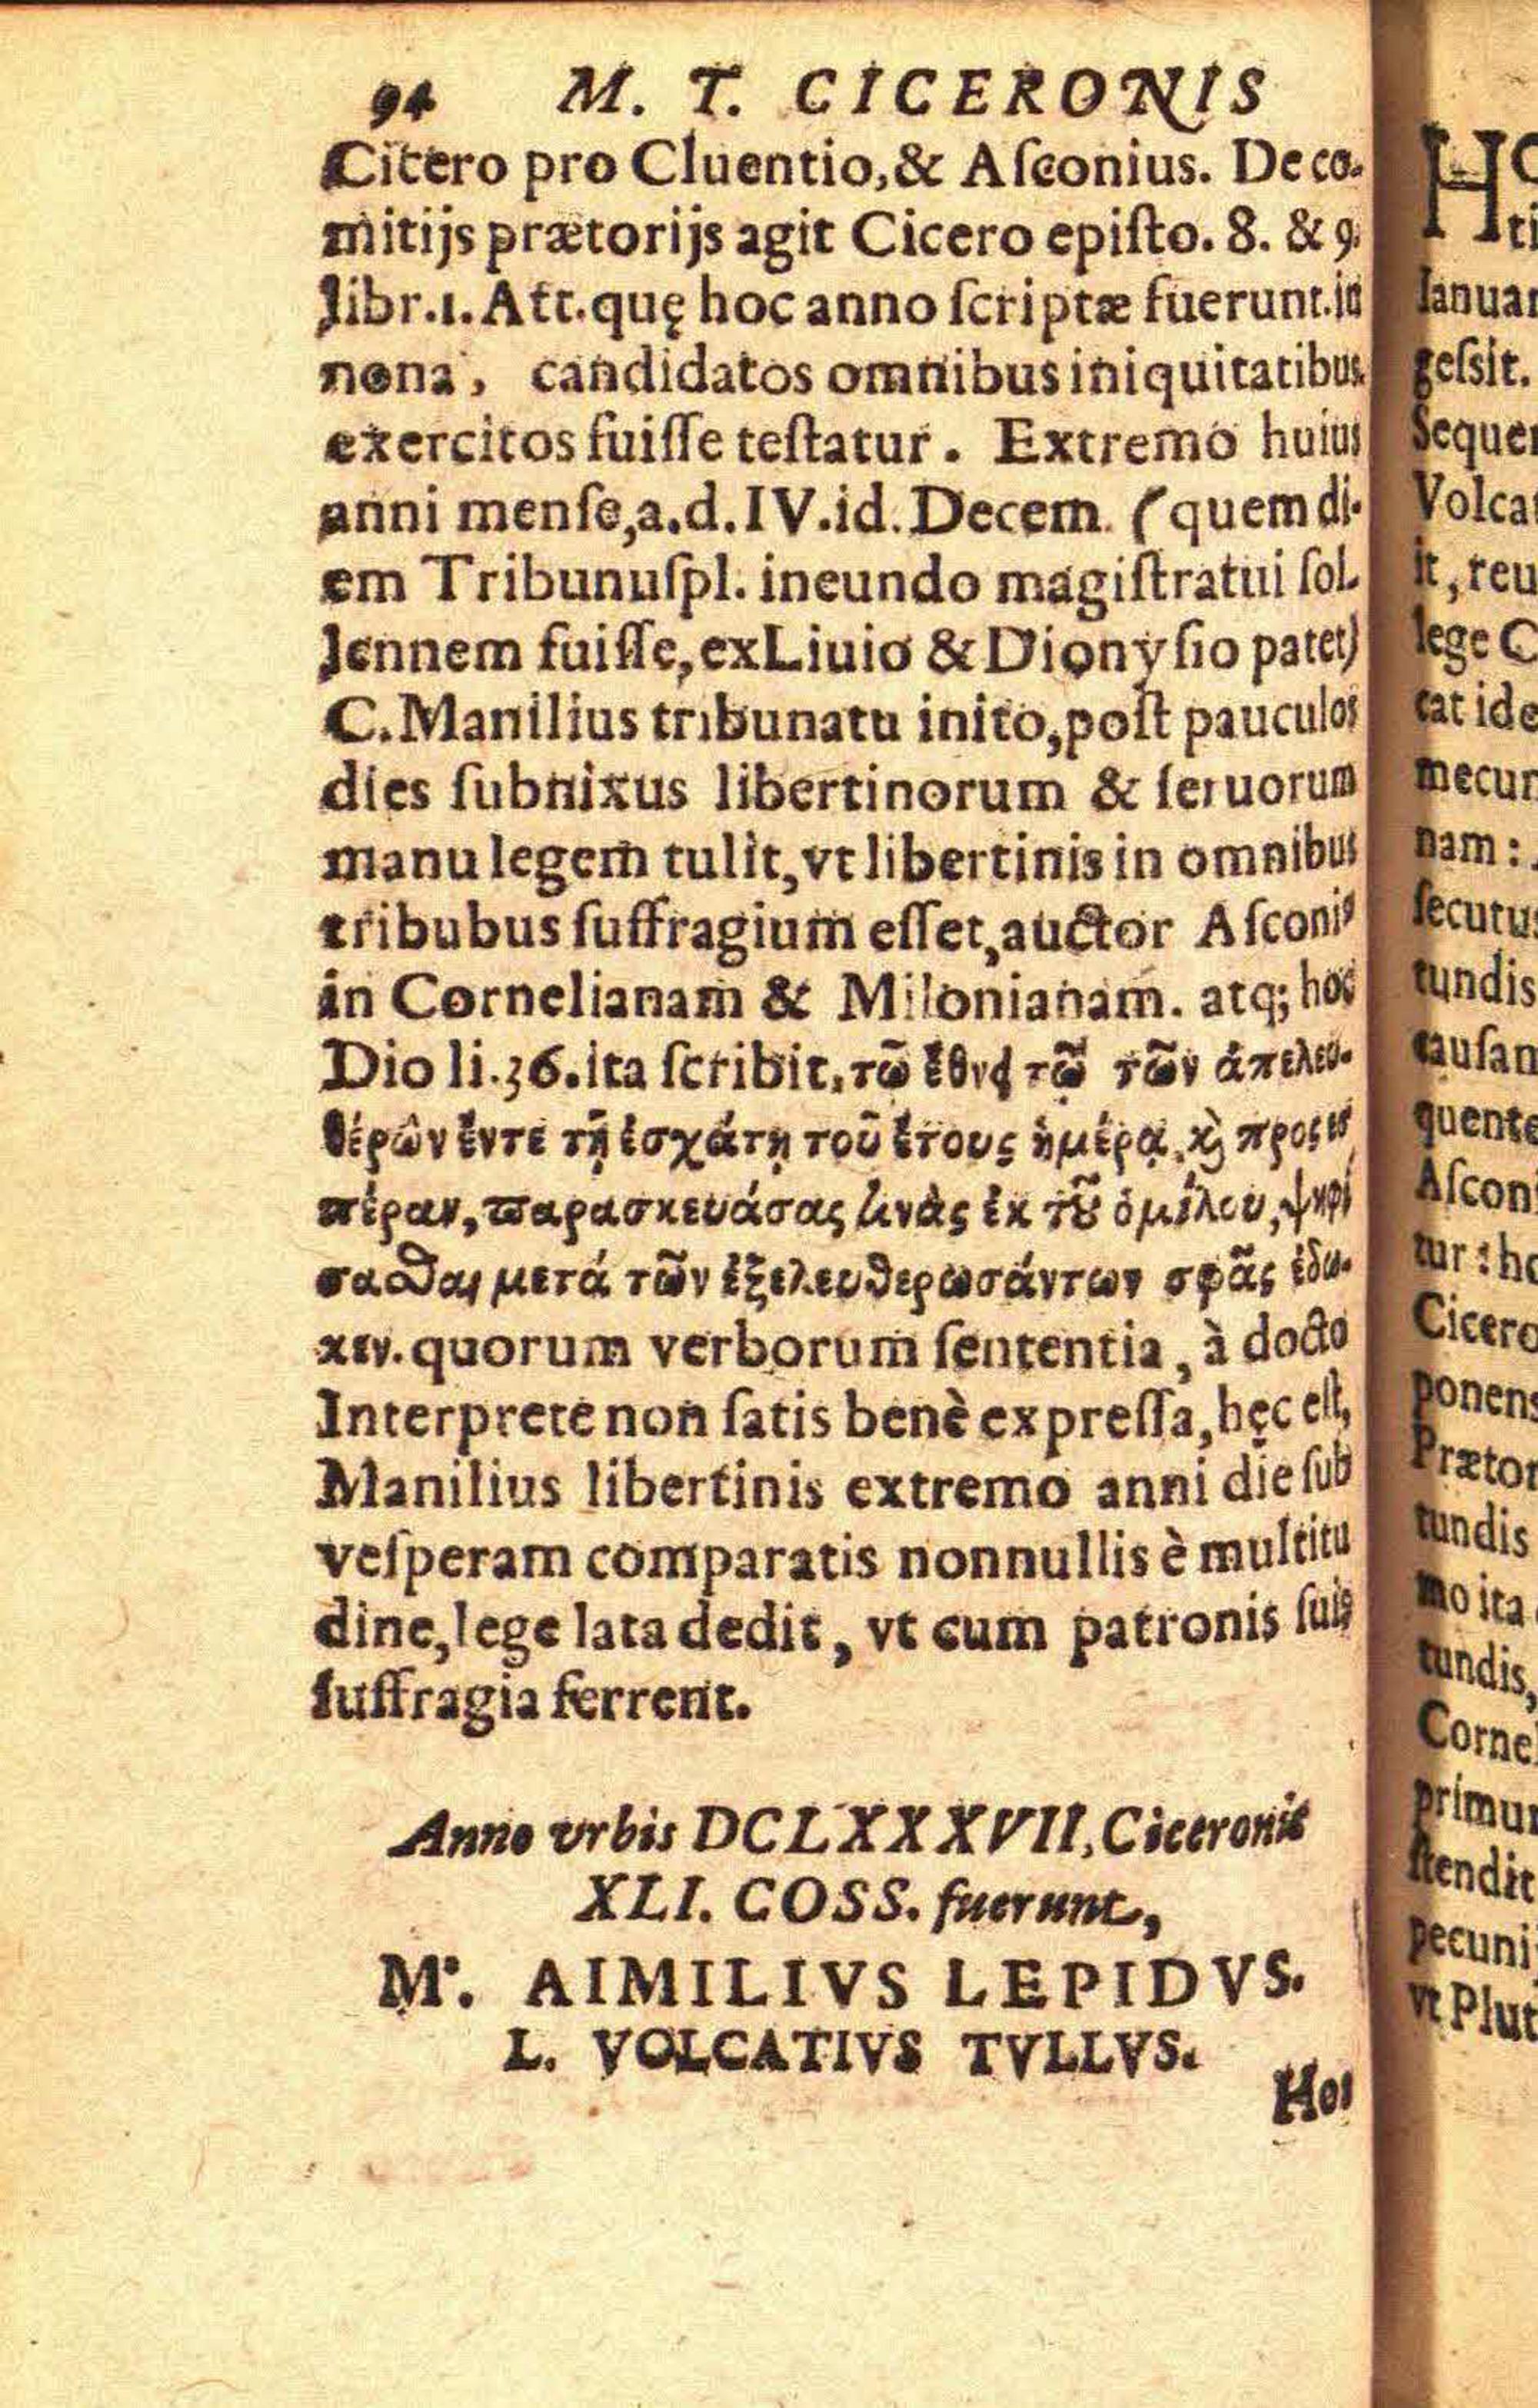 94 M. T. CICERONIS
Cicero pro Cluentio,& Aſconius. De co-
mitijs prætorijs agit Cicero epiſto. 8. & 9.
libr.1. Att.quę hoc anno ſcriptæ fuerunt.in
nona, candidatos omnibus iniquitatibus
exercitos fuiſſe teſtatur. Extremo huius
anni menſe,a.d.IV.id.Decem. (quem di-
em Tribunuſpl. ineundo magiſtratui ſol-
lennem fuiſſe,ex Liuio & Dionyſio patet)
C.Manilius tribunatu inito,poſt pauculos
dies ſubnixus libertinorum & ſeruorum
manu legem tulit,vt libertinis in omnibus
tribubus ſuffragium eſſet,auctor Aſconiꝰ
in Cornelianam & Milonianam. atq; hoc
Dio li.36.ita ſcribit, τῶ ἔθνει τῷ τῶν ἀπελευ-
θέρων ἔντε τῇ ἐσχάτῃ τοῦ ἔτους ἡμέρᾳ, ϗ προς ἑσ
πέραν, παρασκευάσας τινὰς ἐκ τοῦ ὁμίλου, ψηφί
σασθαι μετά τῶν ἐξελευθερωσάντων σφᾶς ἔδω-
κεν. quorum verborum ſententia, à docto
Interprete non ſatis benè expreſſa,hęc eſt,
Manilius libertinis extremo anni die ſub
veſperam comparatis nonnullis è multitu
dine,lege lata dedit, vt cum patronis ſuis
ſuffragia ferrent.
Anno vrbis DCLXXXVII, Ciceronis
XLI. COSS. fuerunt,
M'. AIMILIVS LEPIDVS.
L. VOLCATIVS TVLLVS.
Hos
Ianuar
geſsit.
Seque
Volca
it, reu
lege C
cat ide
mecur
nam:
ſecutu
tundis
cauſam
quente
Aſconi
tur: ho
Cicero
ponens
Prætor
tundis
mo ita
tundis,
Cornel
primu
ſtendit
pecuni
vt Plut